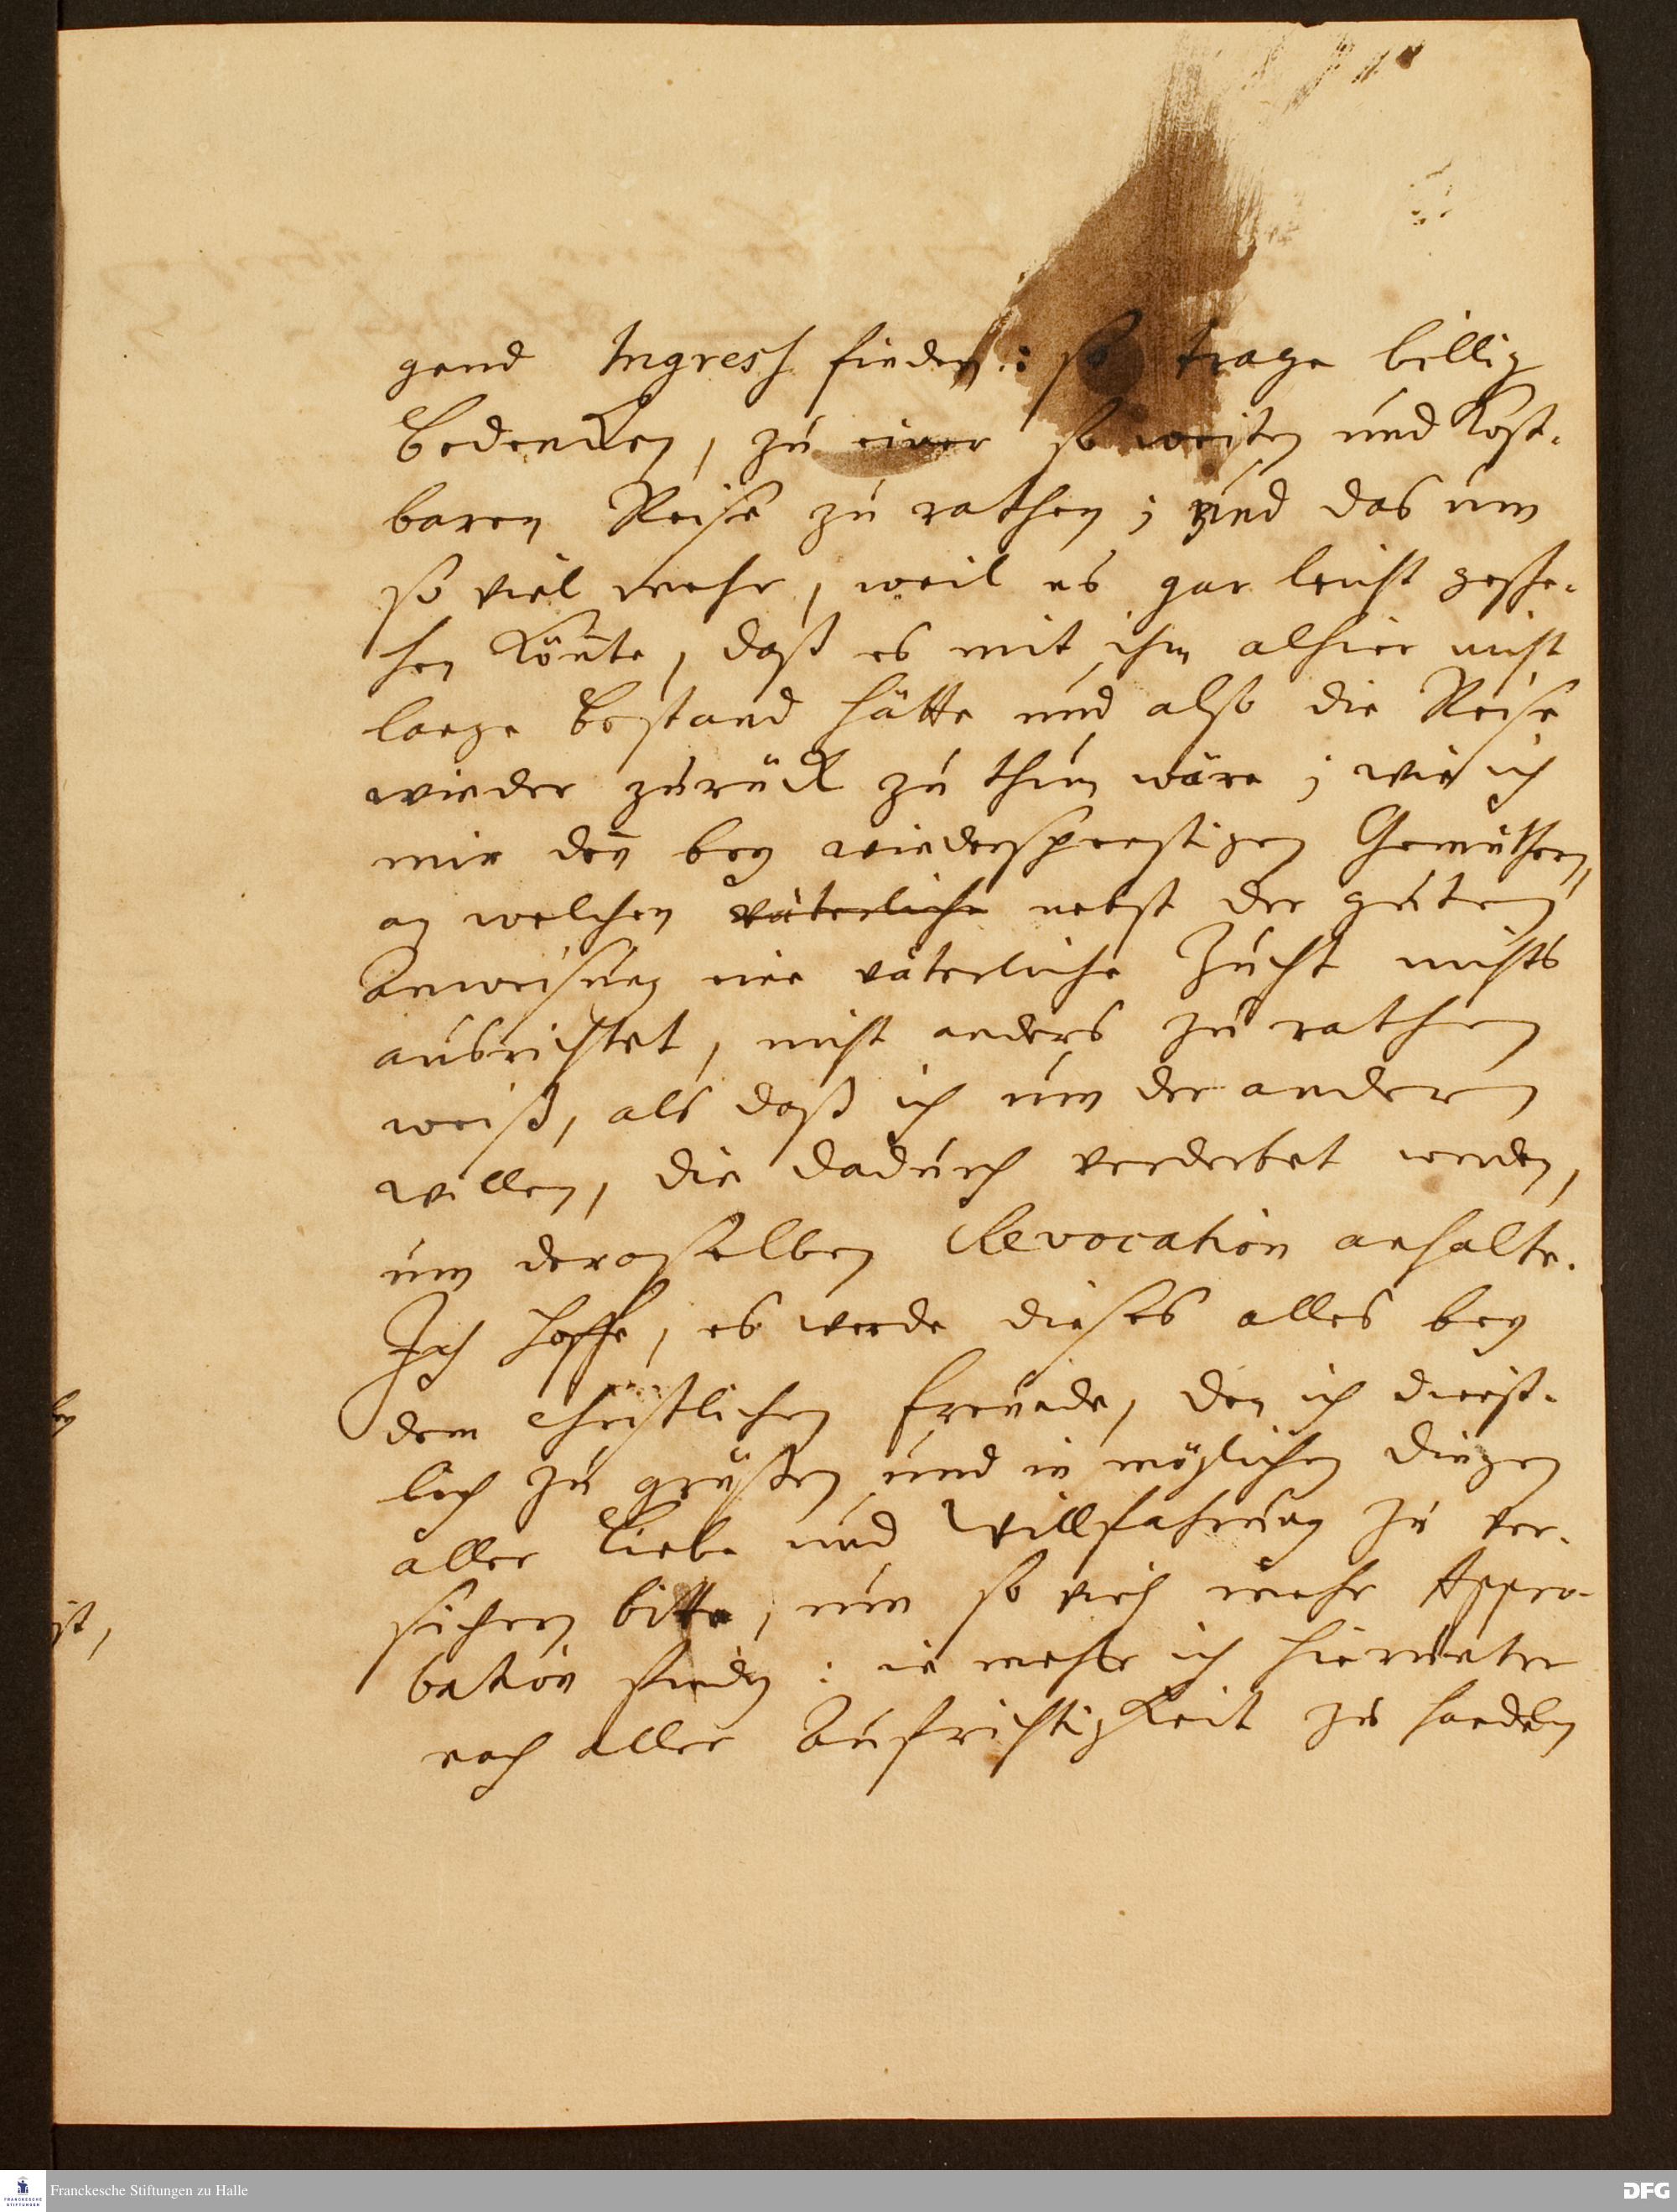 gend Ingress finden: so trage billig
Bedencken, zu einer so weiten und kost-
baren Reise zu rathen; und das um
so viel mehr, weil es gar leicht gesche-
hen kön̄te, daß es mit ihm alhier nicht
lange Bestand hätte und also die Reise
wieder zurück zu thun wäre; wie ich
mir den̄ bey wiederspenstigen Gemüthern,
an welchen väterliche nebst der guten
Anweisung eine väterliche Zucht nichts
ausrichtet, nicht anders zu rathen
weiß, als daß ich um der anderen
willen, die dadurch verderbet werden,
um deroselben Revocation anhalte.
Ich hoffe, es werde dieses alles bey
dem christlichen Freunde, den ich dienst-
lich zu grüßen und in möglichen Dingen
aller Liebe und Willfahrung zu ver-
sichern bitte, um so viel mehr Appro-
bation finden: ie mehr ich hierunter
nach aller Aufrichtigkeit zu handeln
ey
st,
Franckesche Stiftungen zu Halle
FRANCKESCHE
STIFTUNGEN
DFG